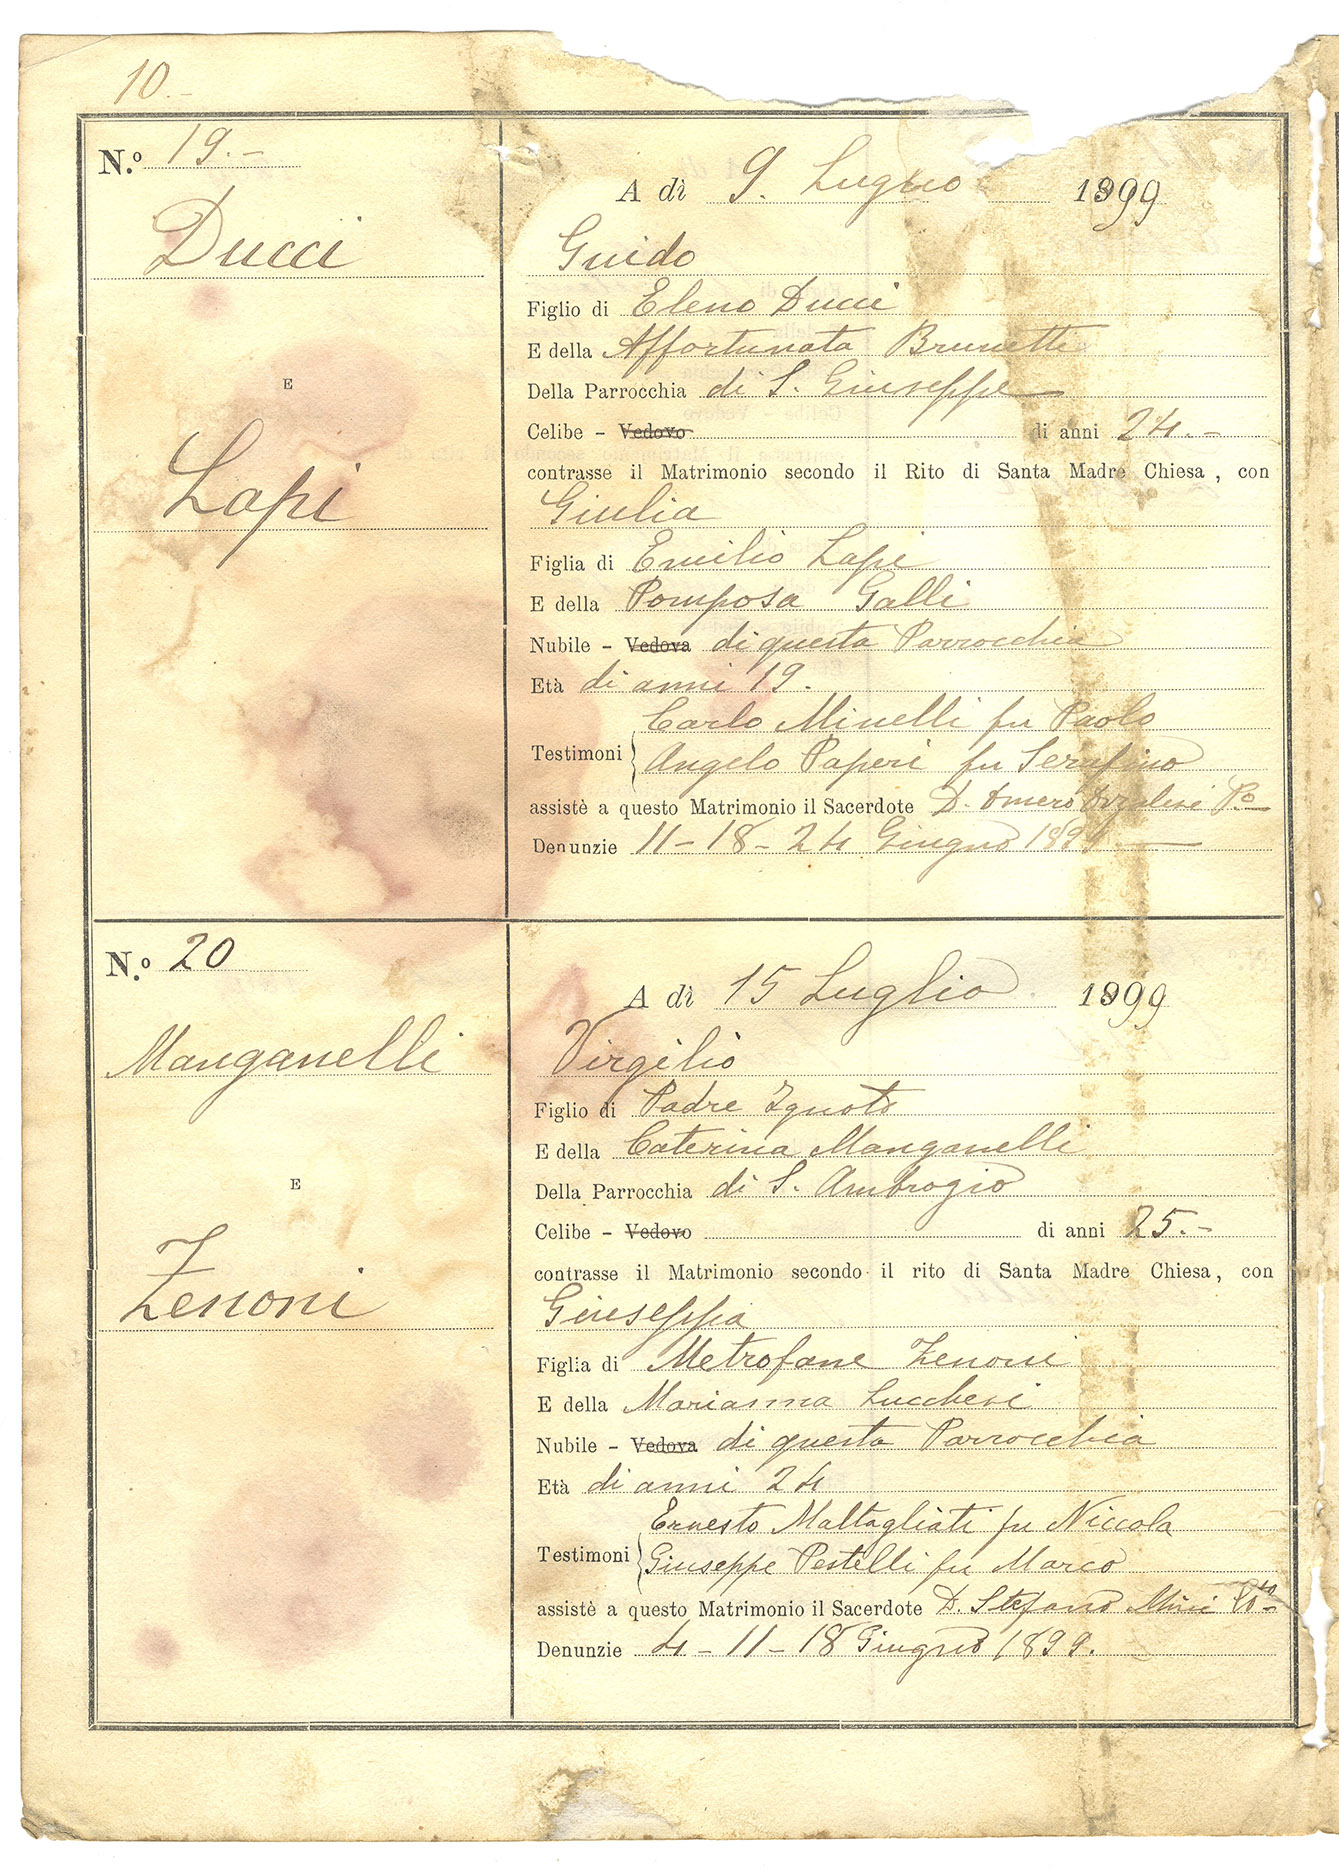 10.-
N.º 19.-
Ducci
E
Lapi
A dì 9. Luglio 1899
Guido
Figlio di Eleno Ducci
E della Affortunata Brunetti
Della Parrocchia di S. Giuseppe
Celibe - Vedovo di anni 24.-
contrasse il Matrimonio secondo il Rito di Santa Madre Chiesa, con
Giulia
Figlia di Emilio Lapi
E della Pomposa Galli
Nubile - Vedova di questa Parrocchia
Età di anni 19.
Carlo Minelli fu Paolo
Testimoni Angelo Paperi fu Serafino
assistè a questo Matrimonio il Sacerdote D.
Denunzie 11-18-24 Giugno 1899
N.º 20
Manganelli
E
Zenoni
A dì 15 Luglio 1899
Virgilio
Figlio di Padre Ignoto
E della Caterina Manganelli
Della Parrocchia di S. Ambrogio
Celibe - Vedovo di anni 25.-
contrasse il Matrimonio secondo il rito di Santa Madre Chiesa, con
Giuseppa
Figlia di Metrofane Zenoni
E della Marianna Lucchesi
Nubile - Vedova di questa Parrocchia
Età di anni 24
Ernesto Maltagliati fu Niccola
Testimoni Giuseppe Pestelli fu Marco
assistè a questo Matrimonio il Sacerdote D. Stefano Mini
Denunzie 4-11-18 Giugno 1899.